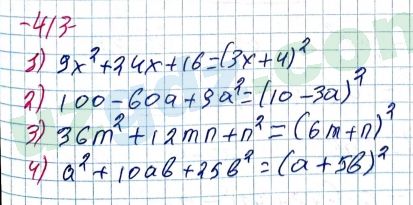 -413-
1) 9x²+24x+16=(3x+4)²
2) 100-60a+9a²=(10-3a)²
3) 36m²+12mn+n²=(6m+n)²
4) a²+10ab+25b²=(a+5b)²